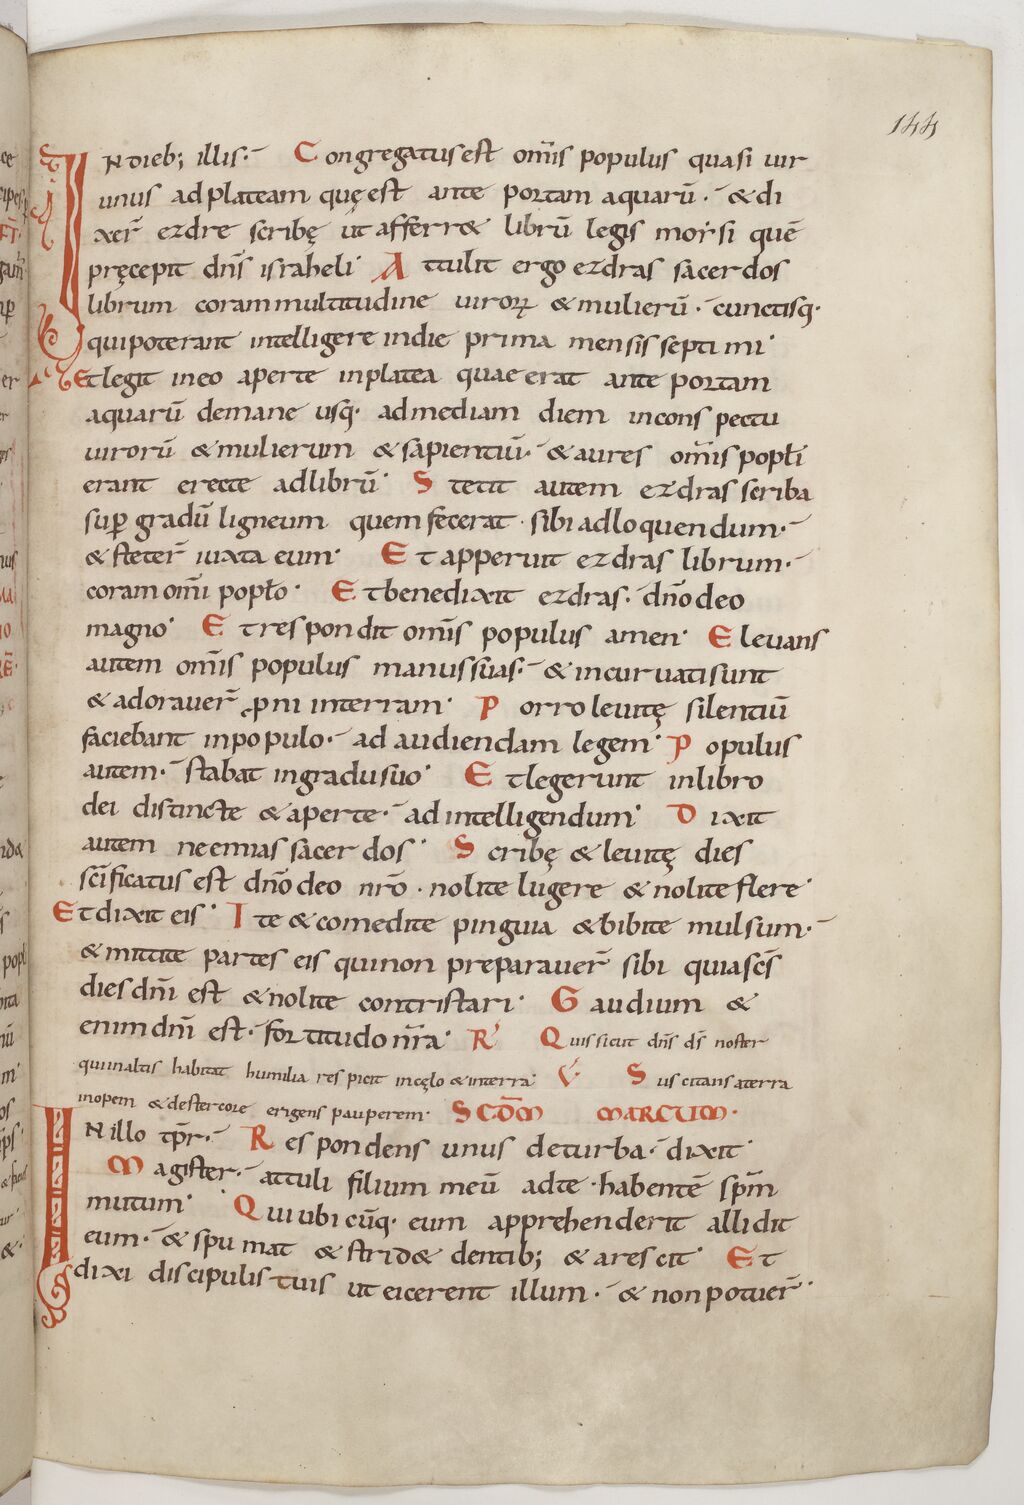 144
IN dieb; illis. Congregatus est om̅is populus quasi uir
unus ad plateam quę est ante portam aquaru̅. & di
xer̅ ezdre scribę ut afferr& libru̅ legis moysi que̅
pręcepit dn̅s israheli. Attulit ergo ezdras sacerdos
librum coram multitudine uiroꝝ & mulieru̅. cunctisq·
qui poterant intelligere in die prima mensis septimi.
Et legit in eo aperte in platea quae erat ante portam
aquaru̅ de mane usq· ad mediam diem in conspectu
uiroru̅ & mulierum & sapientiu̅. & aures om̅is popłi
erant erecte ad libru̅. Stetit autem ezdras scriba
sup̱ gradu̅ ligneum quem fecerat sibi ad loquendum.
& steter̅ iuxta eum. Et apperuit ezdras librum.
coram om̅i popło. Et benedixit ezdras. dn̅o deo
magno. Et respondit om̅is populus amen. Eleuans
autem om̅is populus manus suas. & incuruati sunt
& adorauer̅ ꝓni in terram. Porro leuitę silentiu̅
faciebant in populo. ad audiendam legem. Populus
autem. stabat in gradu suo. Et legerunt in libro
dei distincte & aperte. ad intelligendum. Dixit
autem neemias sacerdos. Scribę & leuitę dies
sc̅ificatus est dn̅o deo nr̅o. nolite lugere & nolite flere.
Et dixit eis. Ite & comedite pinguia & bibite mulsum.
& mittite partes eis qui non preparauer̅ sibi quia sc̅s
dies dn̅i est & nolite contristari. Gaudium &
enim dn̅i est. fortitudo nr̅a. R̸ Quis sicut dn̅s ds̅ noster
qui in altis habitat humilia respicit in cęlo & in terra. V̸ Suscitans a terra
inopem & de stercore erigens pauperem. SCD̅M MARCUM.
IN illo tp̅r. Respondens unus de turba. dixit.
Magister. attuli filium meu̅ ad te habente̅ sp̅m
mutum. Qui ubicu̅q· eum apprehenderit allidit
eum. & spumat & strid& dentib; & arescit. Et
dixi discipulis tuis ut eicerent illum. & non potuer̅.